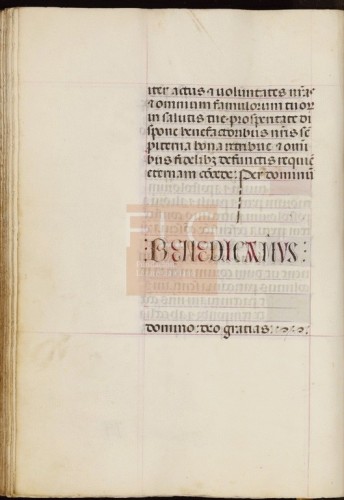 iter actus ⁊ uoluntates nr̃as
⁊ omnium famulorum tuor
in salutis tue prosperitate di
spone benefactoribus nr̃is sẽ
piterna bona retribue ⁊ omĩ
bus fidelibꝫ defunctis requiẽ
eternam cõcede: Per dominũ
:BENEDICAMVS:
domino: deo gratias: